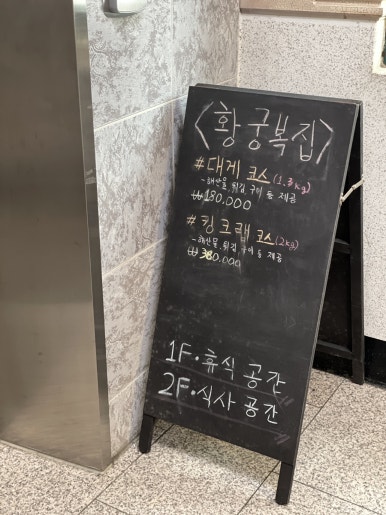 <황궁복집>
#대게 코스 (1.8kg)
-해산물, 튀김, 구이 등 제공
₩180,000
#킹크랩 코스 (2kg)
-해산물, 튀김, 구이 등 제공
₩380,000
1F·휴식 공간
2F·식사 공간